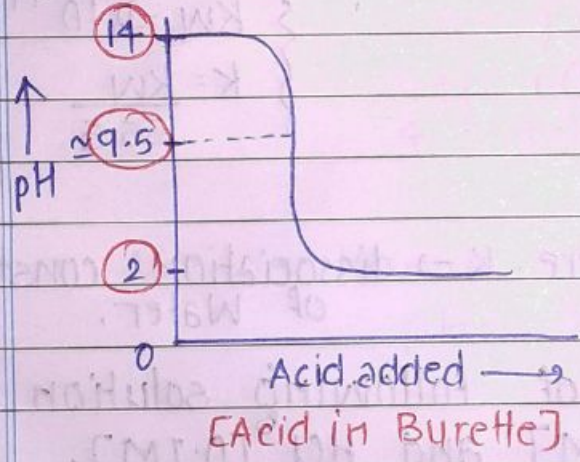 14
≃9.5
pH
2
0
Acid added →
[Acid in Burette]